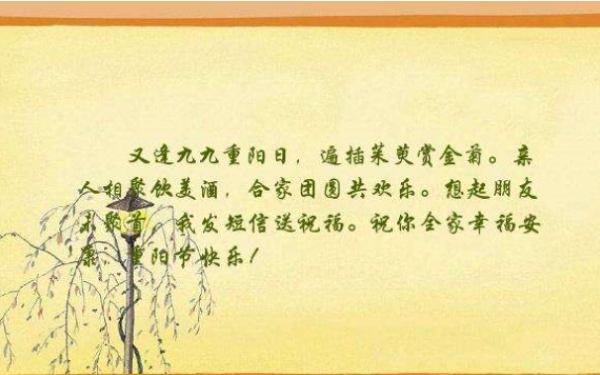 又逢九九重阳日，遍插茱萸赏金菊。亲
人相聚饮美酒，合家团圆共欢乐。想起朋友
未聚首，我发短信送祝福。祝你全家幸福安
康，重阳节快乐！